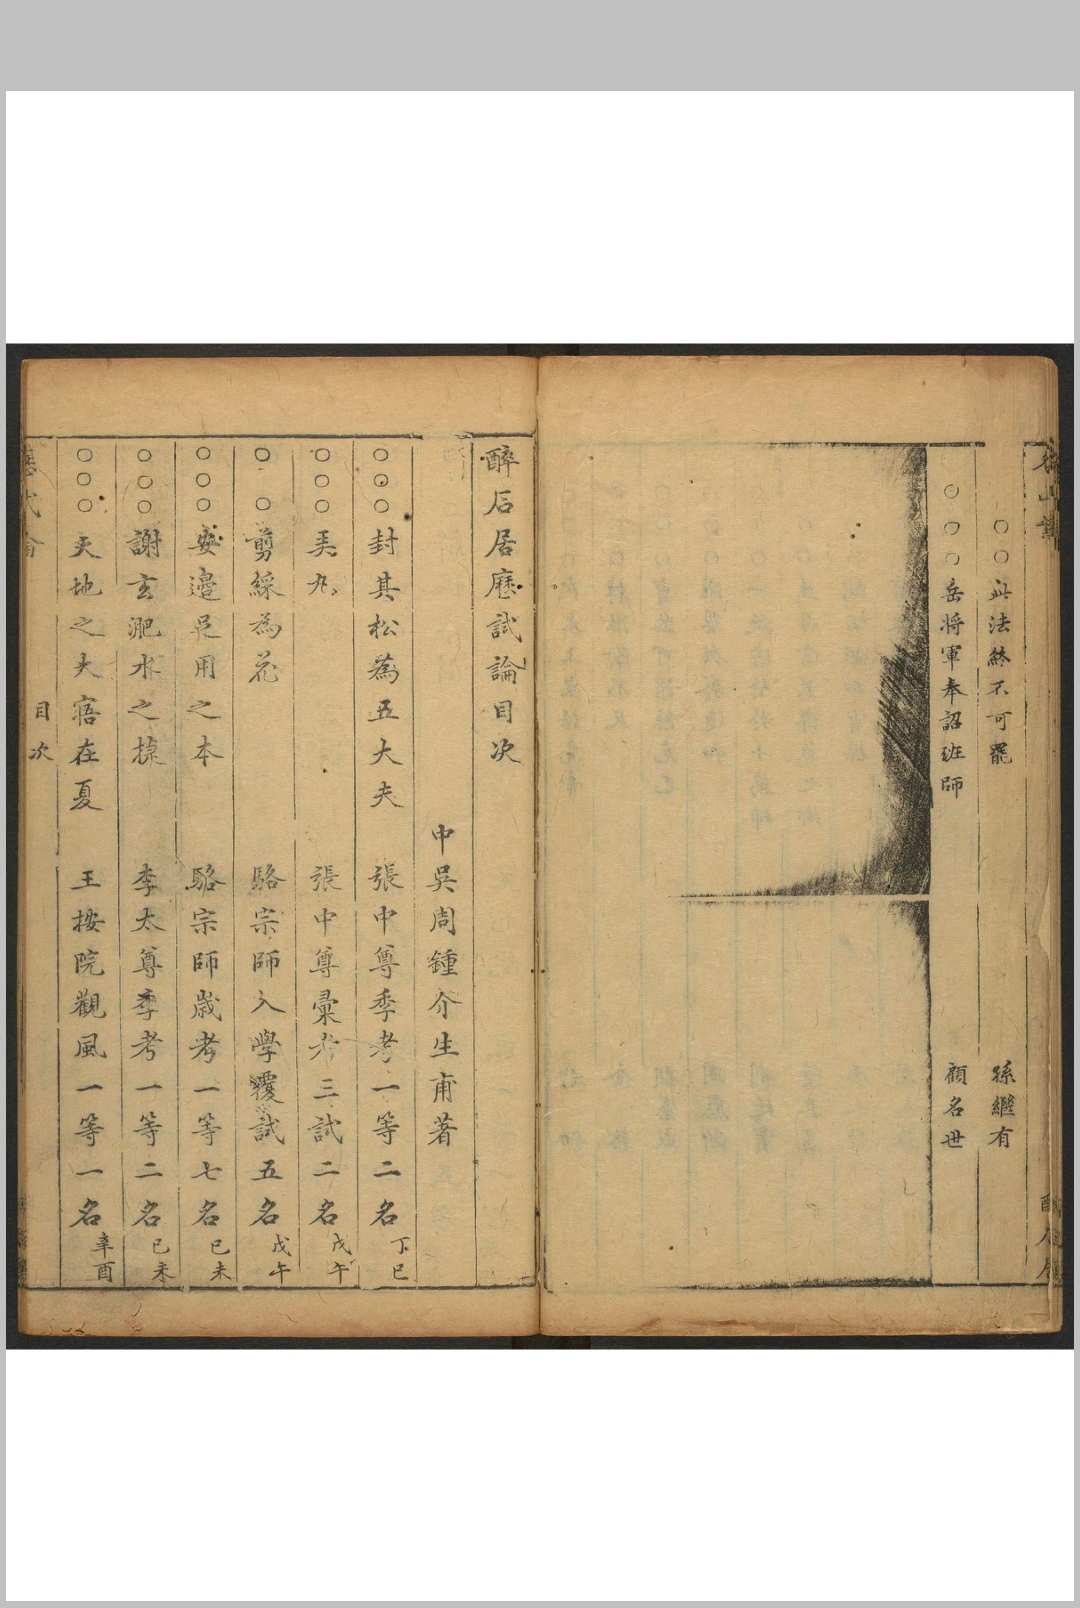 ○○此法終不可罷　孫繼有
○○○岳將軍奉詔班師　顧名世
醉石居歷試論目次
中吳周鍾介生甫著
○○○封其松爲五大夫　張中尊季考一等二名丁巳
○○○弄丸　張中尊彙考三試二名戊午
○○剪綵為花　駱宗師入學覆試五名戊午
○○○安邊足用之本　駱宗師歲考一等七名己未
○○○謝玄淝水之捷　李太尊季考一等二名己未
○○○天地之大寤在夏　王按院觀風一等一名辛酉
目次